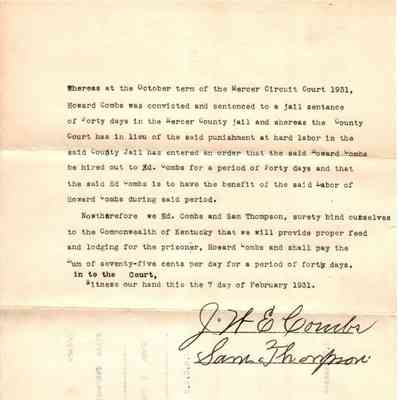 Whereas at the October term of the Mercer Circuit Court 1931,
Howard Combs was convicted and sentenced to a jail sentance
of Forty days in the Mercer County jail and whereas the County
Court has in lieu of the said punishment at hard labor in the
said County Jail has entered an order that the said Howard Combs
be hired out to Ed. Combs for a period of Forty days and that
the said Ed Combs is to have the benefit of the said Labor of
Howard Combs during said period.
Nowtherefore we Ed. Combs and Sam Thompson, surety bind ourselves
to the Commonwealth of Kentucky that we will provide proper feed
and lodging for the prisoner, Howard Combs and shall pay the
Sum of seventy-five cents per day for a period of forty days.
in to the Court,
Witness our hand this the 7 day of February 1931.
J. W E Combs
Sam Thompson